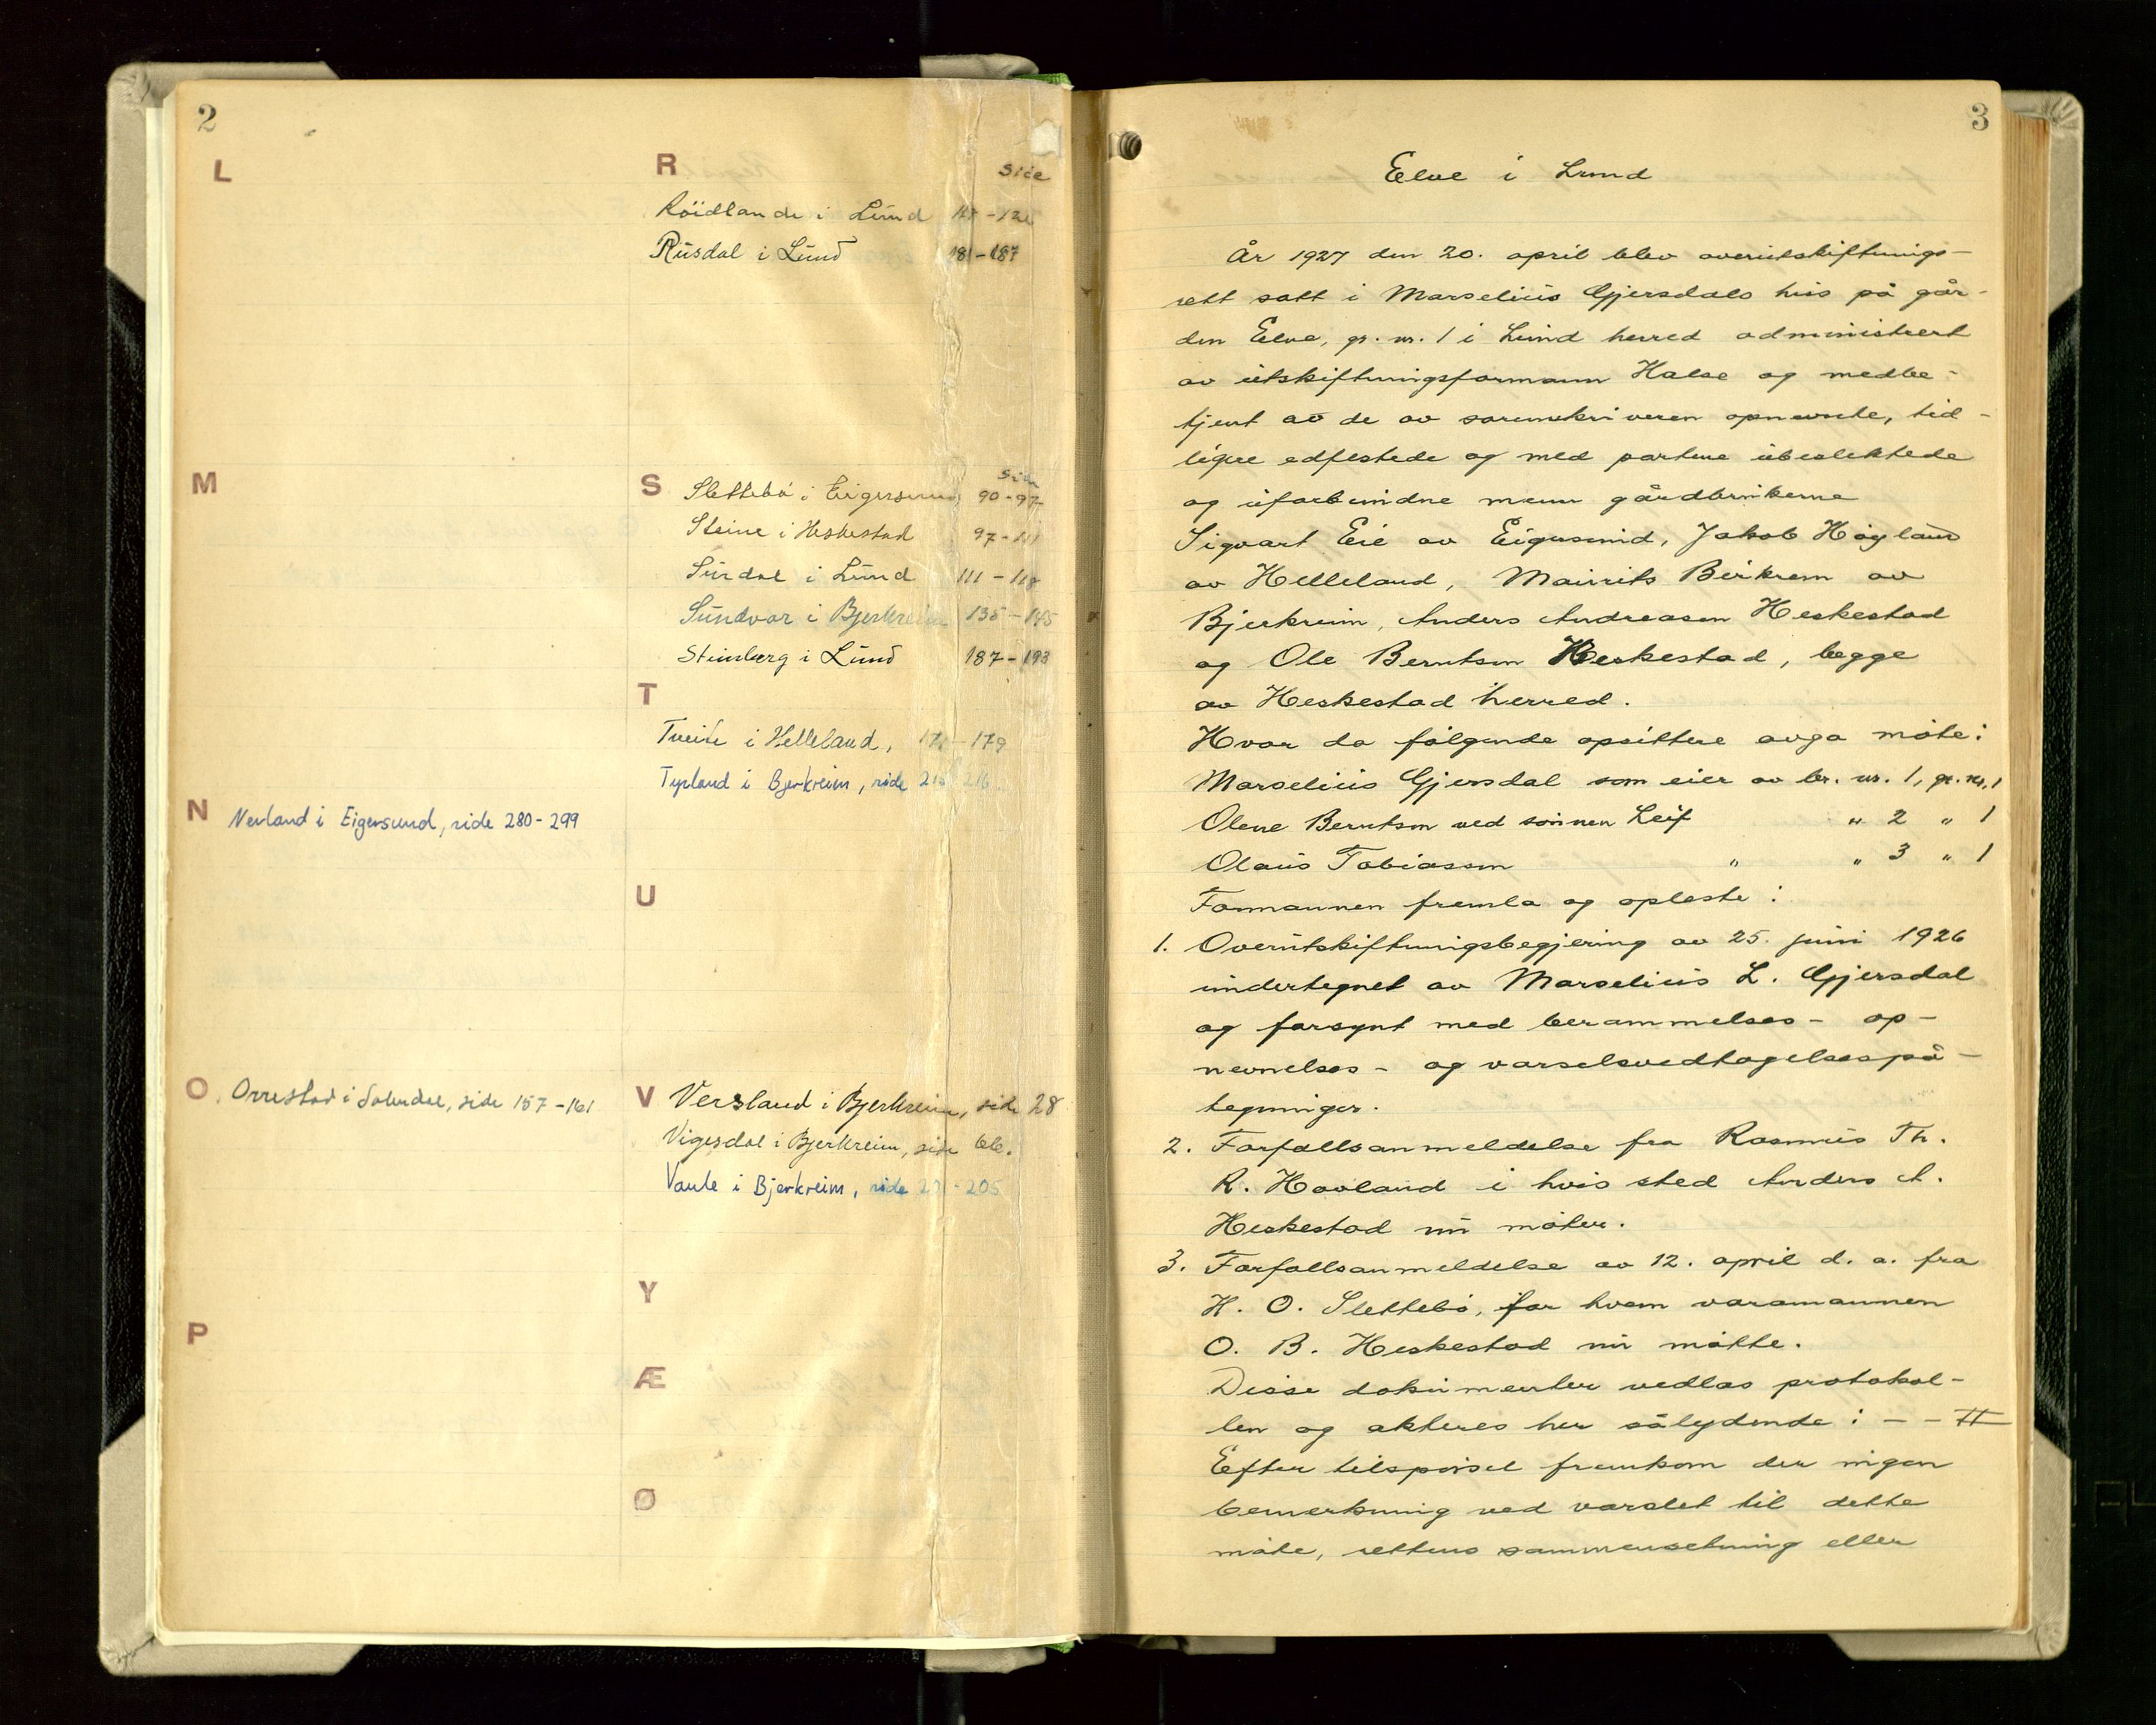 2
L
M
N Nevland i Eigersund, side 280-299
O. Orrestad i Sokndal, side 157-161
P
R
Side
Röidlande i Lund
Rusdal i Lund 181-187
S
Side
Slettebø i Eigersund 90-97
Steine i Heskestad 97-111
Surdal i Lund 111-118
Sundvor i Bjerkreim 135-145
Steinberg i Lund 187-193
T
i Helleland, 179
Tysland i Bjerkreim, side 216
U
V Versland i Bjerkreim, side 28
Vigesdal i Bjerkreim, side 66.
Vaule i Bjerkreim, side 205
Y
Æ
Ø
3
Eelve i Lund
År 1927 den 20. april blev overutskiftnings-
rett satt i Marselius Gjersdals hus på går-
den Eelve, gr. nr. 1 i Lund herred administrert
av utskiftningsformann Halse og medbe-
tjent av de av sorenskriveren opnevnte, tid-
ligere edfestede og med partene ubeslektede
og uforbundne menn gårdbrukerne
Sigvart Eie av Eigersund, Jakob Høyland
av Helleland, Maurits Birkrem av
Bjerkreim, Anders Andreasen Heskestad
og Ole Berntsen Heskestad, begge
av Heskestad herred.
Hvor da følgende opsittere avga møte:
Marselius Gjersdal som eier av br. nr. 1, gr. nr. 1
Olene Berntsen ved sønnen Leif " 2 " 1
Olaus Tobiassen " " 3 " 1
Formannen fremla og opleste:
1. Overutskiftningsbegjering av 25. juni 1926
undertegnet av Marselius L. Gjersdal
og forsynt med berammelses- op-
nevnelses- og varselsvedtagelsespå-
tegninger.
2. Forfallsanmeldelse fra Rasmus Th.
R. Hovland i hvis sted Anders A.
Heskestad nu møter.
3. Forfallsanmeldelse av 12. april d. a. fra
H. O. Slettebø, for hvem varamannen
O. B. Heskestad nu møtte.
Disse dokumenter vedlas protokol-
len og akteres her sålydende: - - #
Efter tilspørsel fremkom der ingen
bemerkning ved varslet til dette
møte, rettens sammensetning eller